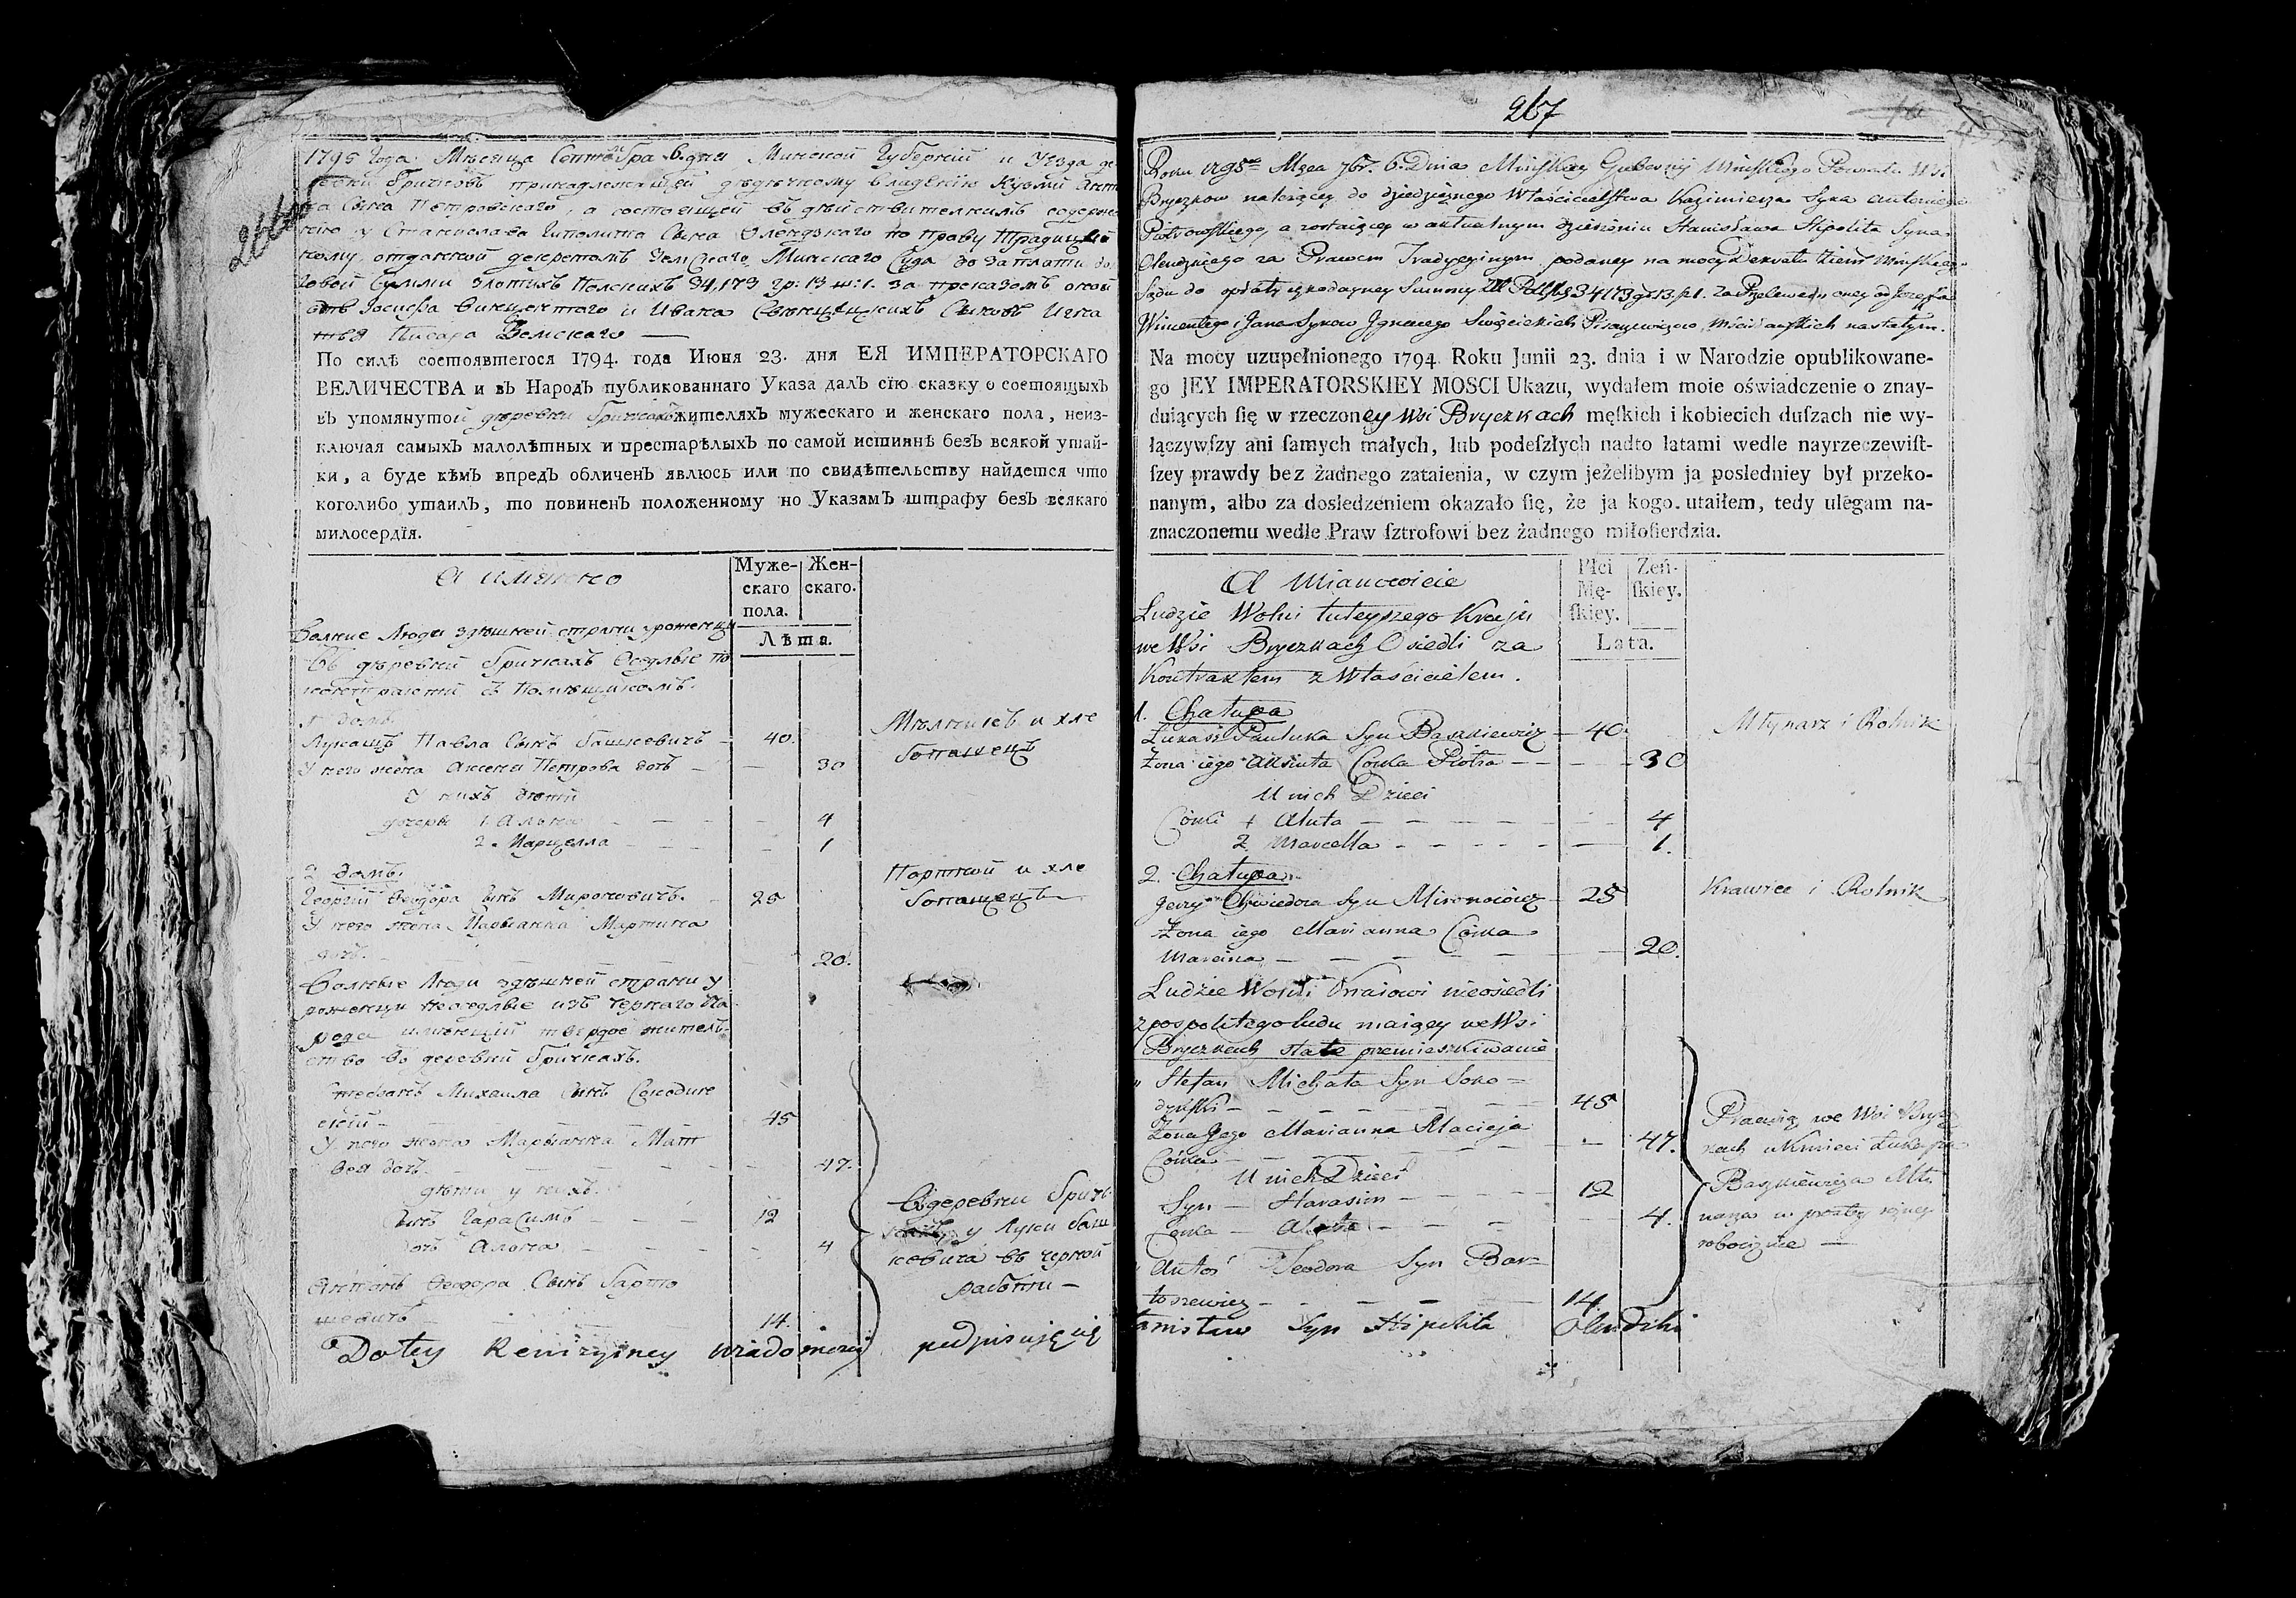 267
1795 Года Мѣсяца Сентября 6 дня Минской Губернии и Уезда де
ревни Бричковъ принадлежащей дѣдичному владѣнию Кузмы Анто
на Сына Петровскаго, а состоящей въ дѣйствительномъ содержа
нию у Станислава Гиполита Сына Олендзкаго по праву Традицій
ному отданной декретомъ Земскаго Минскаго Суда до заплати до
говой суммы злотихъ Полскихъ 34,173 гр: 13 ш: 1. за
Иосифа Винцентого и Ивана Сыновъ Игна
Писара Земскаго —
По силѣ состоявшегося 1794. года Июня 23. дня ЕЯ ИМПЕРАТОРСКАГО
ВЕЛИЧЕСТВА и въ Народъ публикованнаго Указа далъ сїю сказку о состоящыхъ
въ упомянутой деревни Бричкахъ жителяхъ мужескаго и женскаго пола, неиз-
ключая самыхъ малолѣтныхъ и престарѣлыхъ по самой истиннѣ безъ всякой утай-
ки, а буде кѣмъ впредъ обличенъ явлюсь или по свидѣтельству найдется что
коголибо утаилъ, то повиненъ положенному по Указамъ штрафу безъ всякаго
милосердїя.
А имянно
Муже-
скаго
пола.
Жен-
скаго.
Лѣта.
Волние Люди здѣшней страни уроженци
въ деревни Бричкахъ Оседлые по
контрактѣ з Помещикомъ.
1 домъ.
Лукашъ Павла Сынъ Башкевичъ — 40. Мѣлникъ и хле
У него жена Аксеня Петрова дочь — 30 бопашецъ
У нихъ дѣти
дочери 1. Алюта — 4
2. Марцелла — 1
2 домъ.
Георгий Феодора Сынъ Мироновичъ. 25 Портной и хле
У него жена Марыанна Мартина бопашецъ
дочь. — 20.
Волные Люди здѣшней страни у
роженци неоседлые изъ чернаго На
рода имеющий твердое жительс
тво въ деревни Бричкахъ.
Стефанъ Михаила Сынъ Сокодин
ский — 45
У него жена Марыанна Мат
вея дочь. — 47.
дѣти у нихъ.
Сынъ Гарасимъ — 12
дочь Алюта — 4
Въ деревни Брич
кахъ у Луки Баш
кевича въ черной
работи —
Антонъ Феодора Сынъ Барто
шевичъ — 14.
Do tey Rewizyiney wiadomości podpisuię się
Roku 1795go Mca 7br. 6. Dnia Mińskiey Gubernij Mińskiego Powiatu Wsi
Bryczkow należącey do dziedzicznego Właścicielstwa Kazimierza Syna Antoniego
Piotrowskiego, a zostaiącey w aktualnym dzierżeniu Stanisława Hipolita Syna
Olendzkiego za Prawem Tradycyinym podaney na mocy Dekretu Ziem: Mińskiego
Sądu do opłaty Summy Zł Pols 34173 gr 13 sz 1. Za Przelewem oney od Jozefa
Wincentego i Jana Synow Jgnacego Swięcickich
Na mocy uzupełnionego 1794 Roku Junii 23. dnia i w Narodzie opublikowane-
go JEY IMPERATORSKIEY MOSCI Ukazu, wydałem moie oświadczenie o znay-
duiących ſię w rzeczoney Wsi Bryczkach męſkich i kobiecich duſzach nie wy-
łączywſzy ani ſamych małych, lub podeſzłych nadto latami wedle nayrzeczewiſt-
ſzey prawdy bez żadnego zataienia, w czym jeżelibym ja posledniey był przeko-
nanym, albo za dosledzeniem okazało ſię, że ja kogo utaiłem, tedy ulegam na-
znaczonemu wedle Praw ſztrofowi bez żadnego miłoſierdzia.
A Mianowicie
Płci
Mę-
ſkiey.
Zeń-
ſkiey.
Lata.
Ludzie Wolni tuteyszego Kraju
we Wsi Bryczkach Osiedli za
Kontraktem z Właścicielem.
1. Chałupa
Łukasz Pawluka Syn Baszkiewicz — 40. Młynarz i Rolnik
Żona iego Auxiuta Corka Piotra — 30
U nich Dzieci
Corki 1 Aluta — 4
2 Marcella — 1.
2. Chałupa
Jerzy Chwiedora Syn Mironowicz 25 Krawiec i Rolnik
Żona iego Marianna Córka
Marcina — 20.
Ludzie Wolni Kraiowi nieosiedli
z pospolitego ludu maiący we Wsi
Bryczkach stałe premieszkiwanie
Stefan Michała Syn Soko-
dzyński — 45
Żona Jego Marianna Macieja
Córka — 47.
U nich Dzieci
Syn — Harasim — 12
Corka — Aluta — 4.
Pracuią we Wsi Brycz
kach u Kmieci Łukasza
Baszkiewicza Mły
narza w prostey rożney
robociznie —
Antoś Teodora Syn Bar-
toszewicz — 14.
Stanisław Syn Hipolita Olendzki